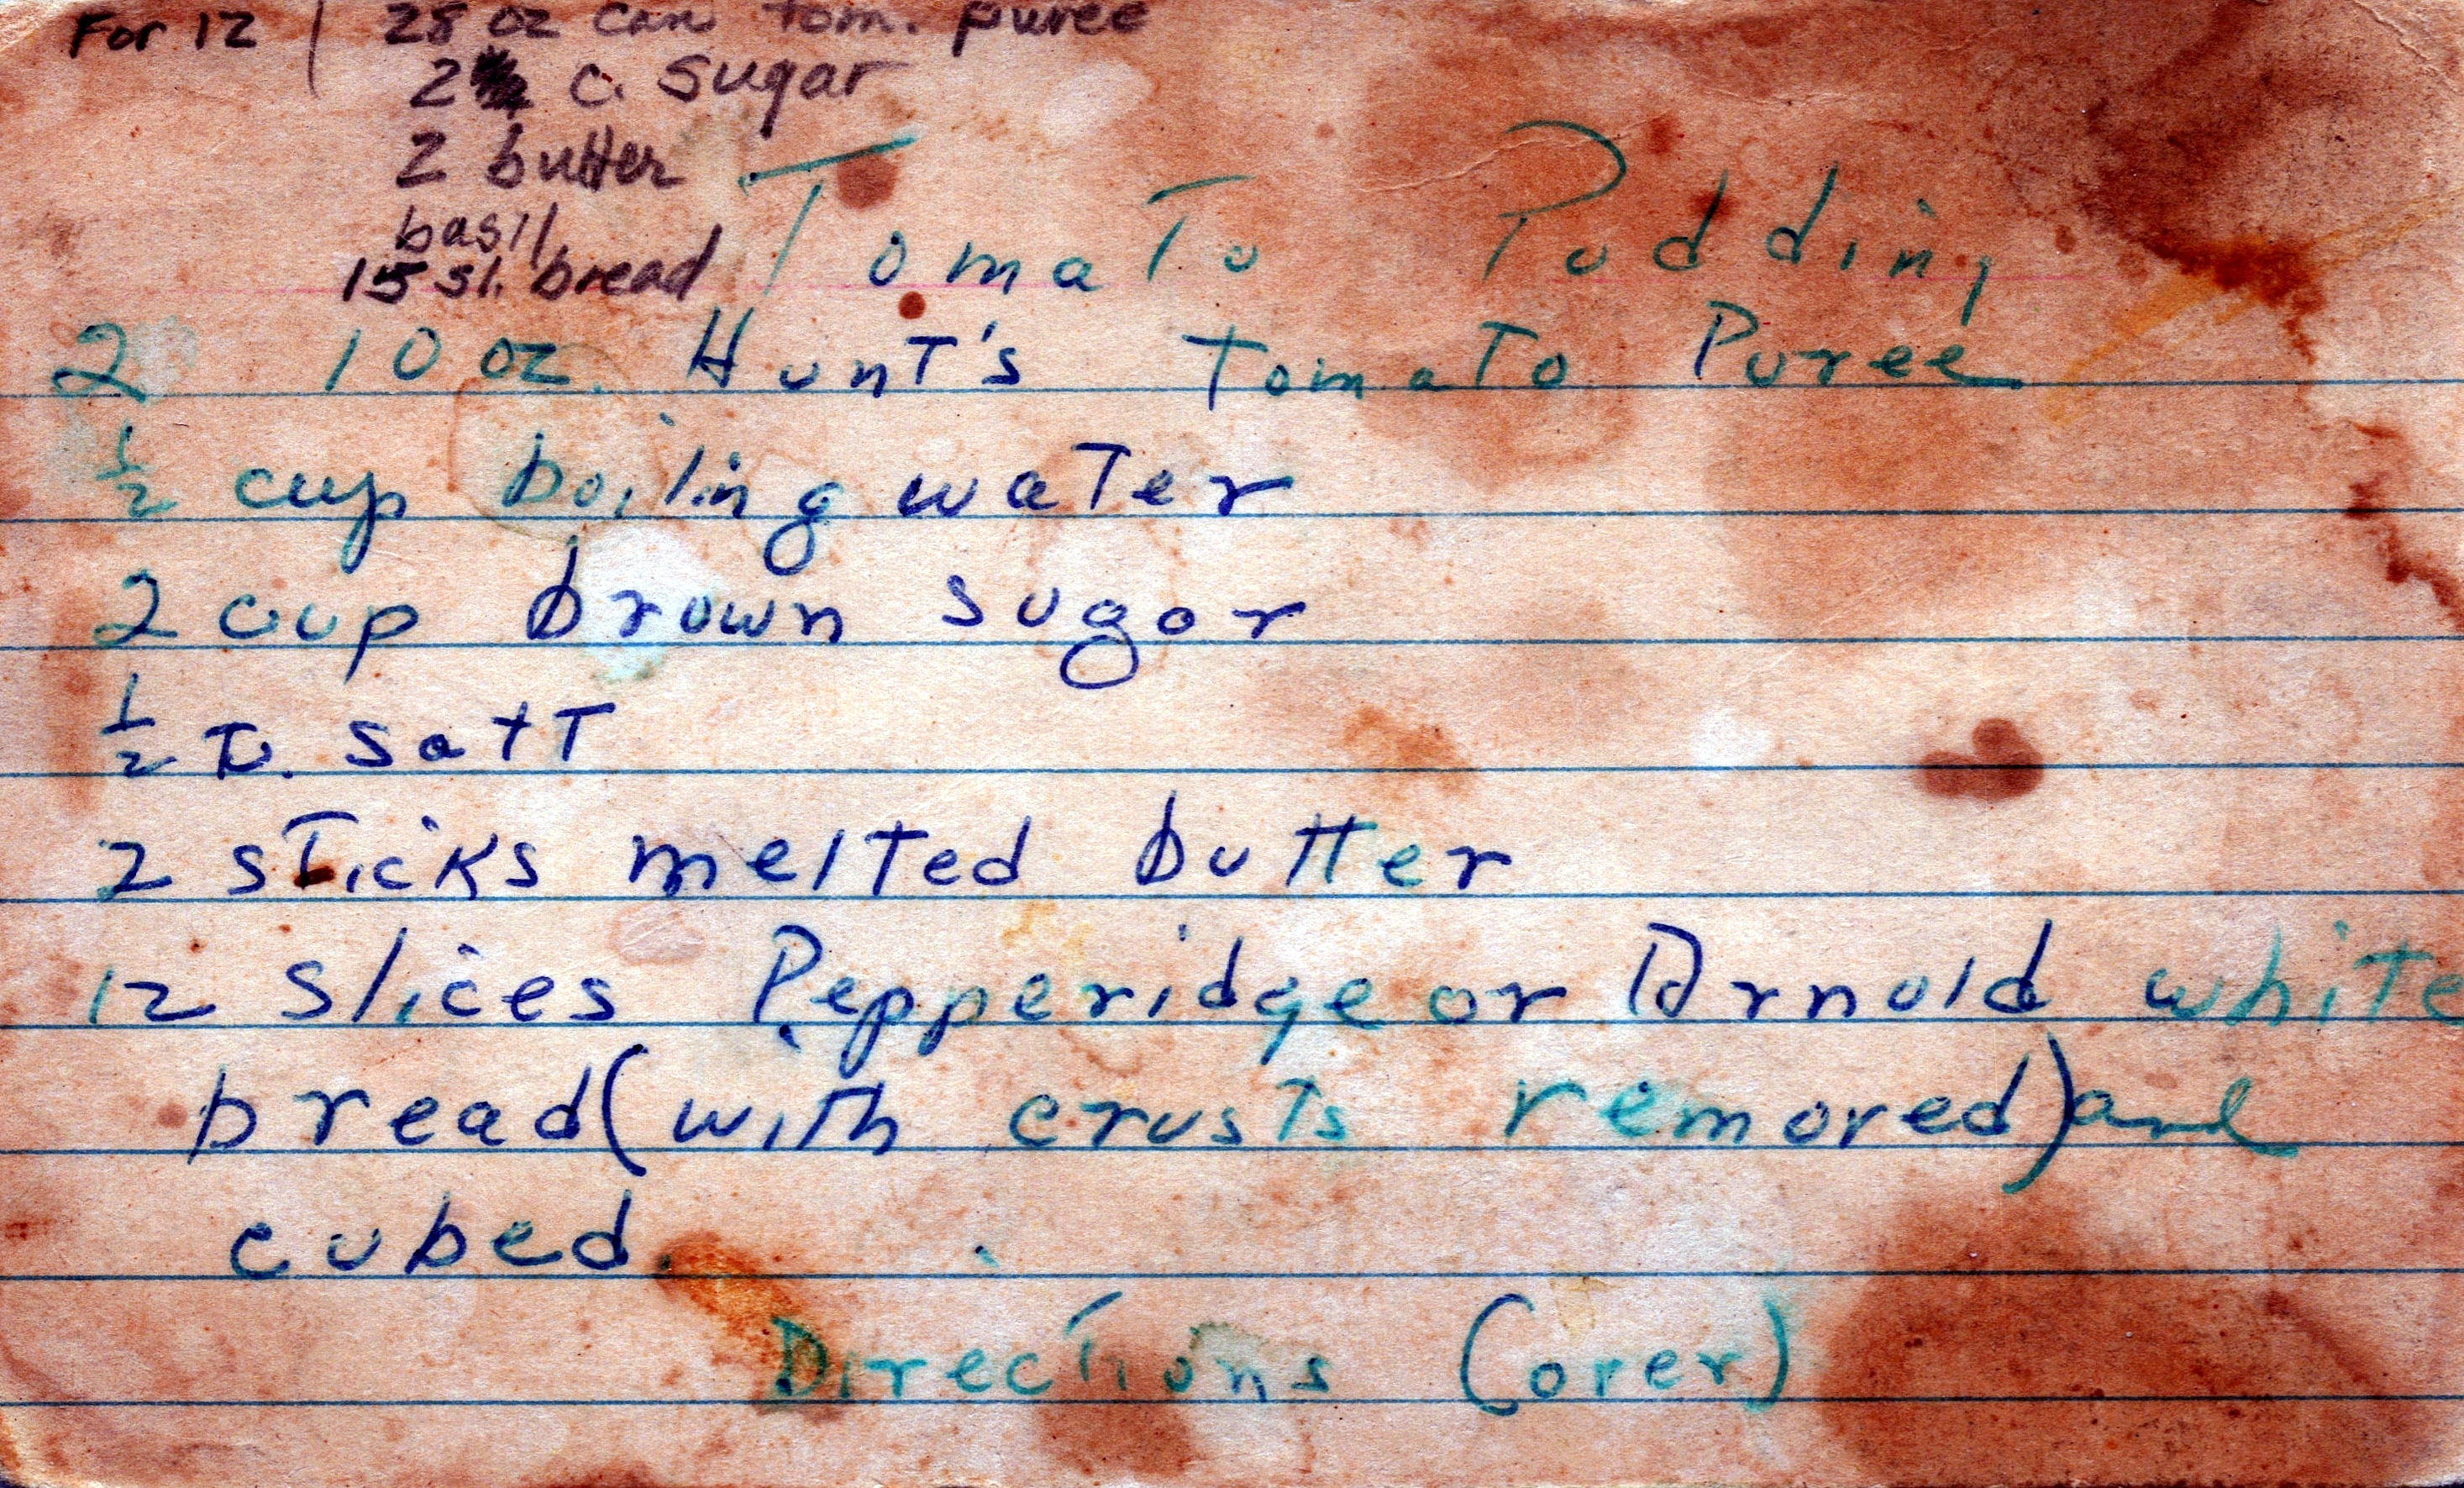 For 12 | 28 oz can tom. puree
2 c. sugar
2 butter
basil
15 sl. bread
Tomato Pudding
2 10 oz. Hunt's Tomato Puree
1/2 cup boiling water
2 cup brown sugar
1/2 t. salt
2 sticks melted butter
12 slices Pepperidge or Arnold white
bread (with crusts removed) and
cubed.
Directions (over)